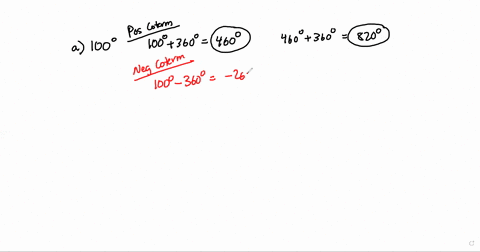 a) 100° Pos Coterm 100° + 360° = 460° 460° + 360° = 820°
Neg Coterm
100° - 360° = -26